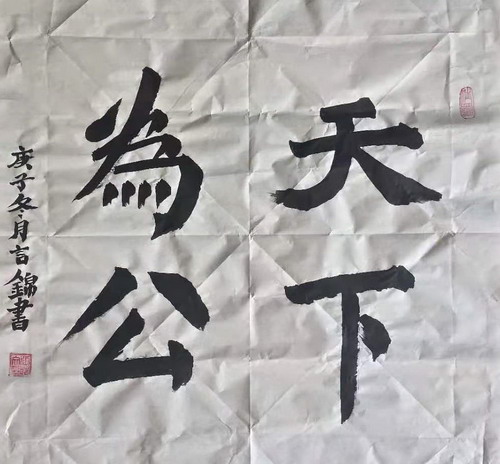 天下
為公
庚子冬月言錦書